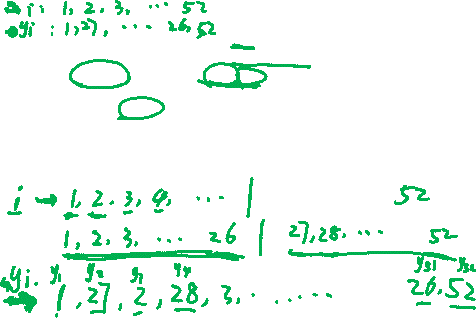 i : 1, 2, 3, ... 52
yi : 1, 27, ... 26, 52
i → 1, 2, 3, 4, ... | 52
1, 2, 3, ... 26 | 27, 28, ... 52
yi. y1 y2 y3 y4 y51 y52
1, 27, 2, 28, 3, ... ... 26, 52